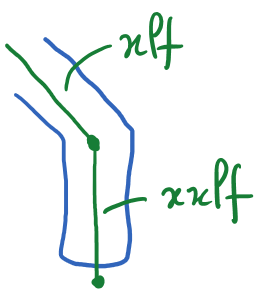 xlf
xxlf